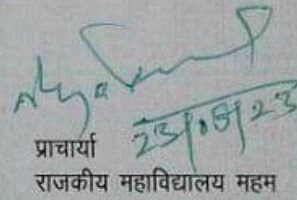 23/05/23
प्राचार्या
राजकीय महाविद्यालय महम